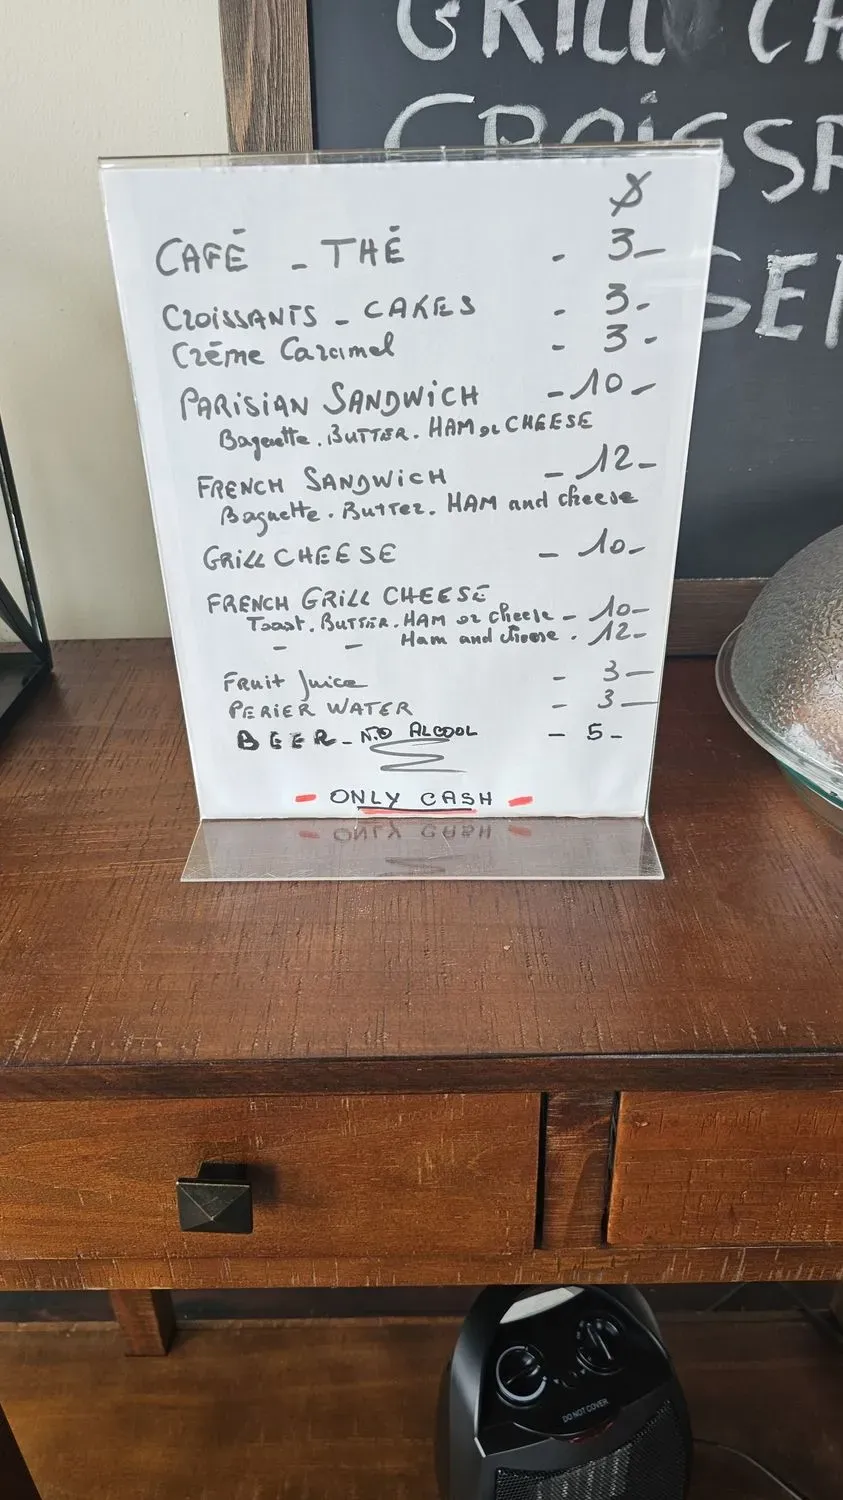 GRILL CH
CROISSA
SEN
$
CAFÉ - THÉ - 3 -
CROISSANTS - CAKES - 3 -
Crème Caramel - 3 -
PARISIAN SANDWICH - 10 -
Baguette. BUTTER. HAM or CHEESE
FRENCH SANDWICH - 12 -
Baguette. Butter. HAM and cheese
GRILL CHEESE - 10 -
FRENCH GRILL CHEESE
Toast. BUTTER. HAM or cheese - 10 -
- - Ham and cheese. 12 -
Fruit Juice - 3 -
PERIER WATER - 3 -
BEER - NO ALCOOL - 5 -
- ONLY CASH -
DO NOT COVER